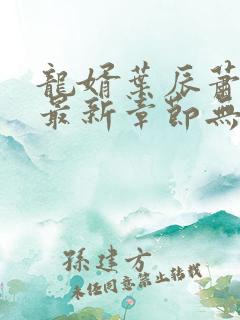 龍婿葉辰蕭
最新章節無
孫建方
未經同意禁止轉載